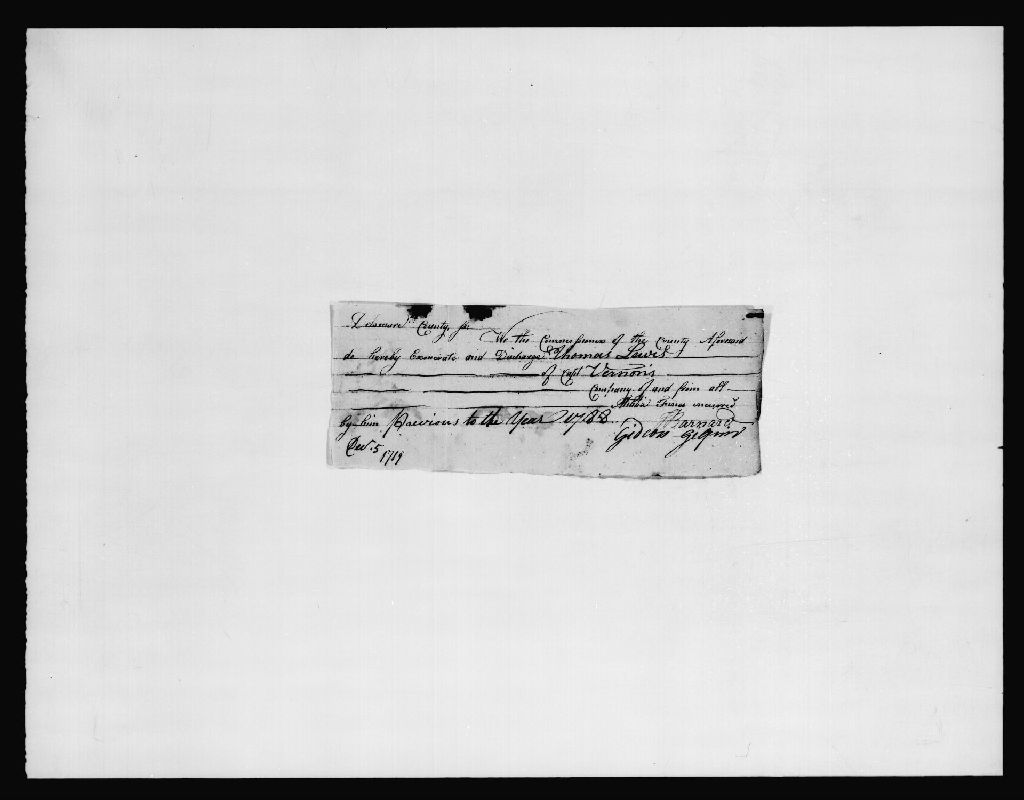 Delaware County ss
We the Commissioners of the County Aforesaid
do hereby Exonerate and Discharge Thomas Lewis
of Capt Vernon's
Company of and from all
Militia Fines incurred
by him Previous to the Year 1788
Barnard
Gideon Gilpin
Decr. 5 1789